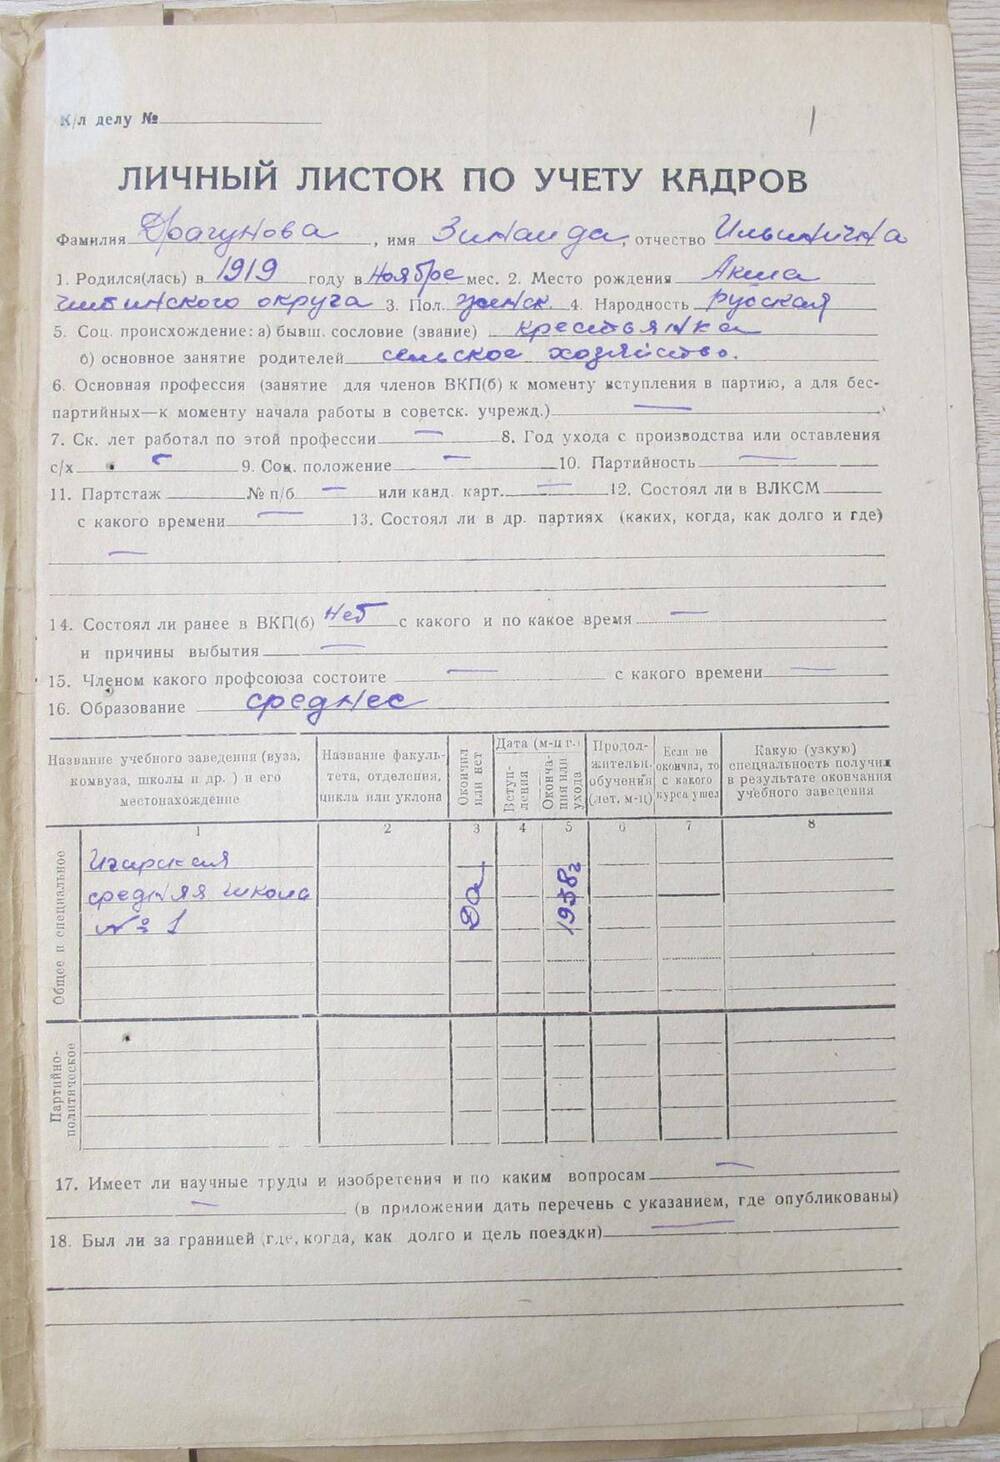 К/л делу №
1
ЛИЧНЫЙ ЛИСТОК ПО УЧЕТУ КАДРОВ
Фамилия Драгунова, имя Зинаида, отчество Ильинична
1. Родился(лась) в 1919 году в Ноябре мес. 2. Место рождения
округа 3. Пол. женск. 4. Народность русская
5. Соц. происхождение: а) бывш. сословие (звание) крестьянка
б) основное занятие родителей сельское хозяйство.
6. Основная профессия (занятие для членов ВКП(б) к моменту вступления в партию, а для бес-
партийных—к моменту начала работы в советск. учрежд.) —
7. Ск. лет работал по этой профессии — 8. Год ухода с производства или оставления
с/х — 9. Соц. положение — 10. Партийность —
11. Партстаж № п/б. — или канд. карт. — 12. Состоял ли в ВЛКСМ
с какого времени — 13. Состоял ли в др. партиях (каких, когда, как долго и где)
—
14. Состоял ли ранее в ВКП(б) нет с какого и по какое время —
и причины выбытия —
15. Членом какого профсоюза состоите — с какого времени —
16. Образование среднее
Название учебного заведения (вуза, комвуза, школы и др.) и его местонахождение
Название факуль-
тета, отделения,
цикла или уклона
Окончил или нет
Дата (м-ц г.)
Вступ-
ления
Оконча-
ния или
ухода
Продол-
жительн.
обучения
(лет, м-ц)
Если не
окончил, то
с какого
курса ушел
Какую (узкую)
специальность получил
в результате окончания
учебного заведения
1 2 3 4 5 6 7 8
Общее и специальное
Игарская
средняя школа
№ 1
Да
1938г
Партийно-
политическое
17. Имеет ли научные труды и изобретения и по каким вопросам —
— (в приложении дать перечень с указанием, где опубликованы)
18. Был ли за границей (где, когда, как долго и цель поездки) —